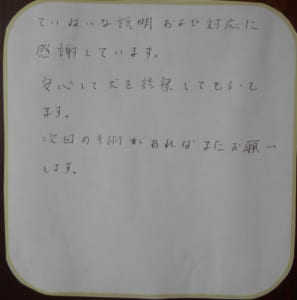 ていねいな説明および対応に
感謝しています。
安心して犬を診察してもらってい
ます。
次回の手術があればまたお願い
します。